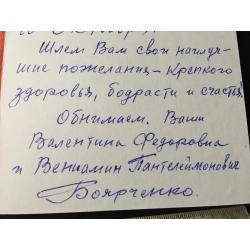 Шлем Вам свои наилуч-
шие пожелания – Крепкого
здоровья, бодрасти и счастья
Обнимаем. Ваши
Валентина Федоровна
и Вениамин Пантелеймонович
Боярченко.